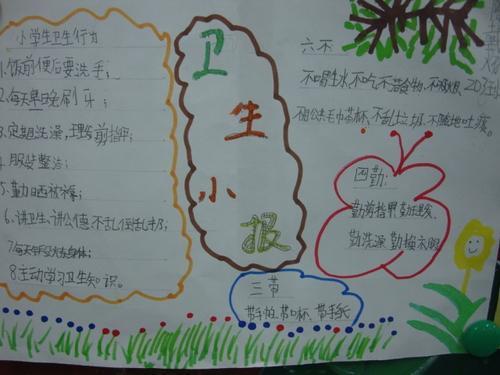 小学生卫生行为
1.饭前便后要洗手；
2.每天早晚刷牙；
3.定期洗澡，理发剪指甲；
4.服装整洁；
5.勤晒被褥；
6.讲卫生、讲公德不乱倒乱扔；
8.主动学习卫生知识。
卫生小报
六不
不喝生水、不吃不洁食物、不吸烟
不用公共毛巾茶杯、不乱扔垃圾、不随地吐痰。
四勤：
勤剪指甲勤理发
勤洗澡 勤换衣服
三带
带手帕、带口杯、带手纸